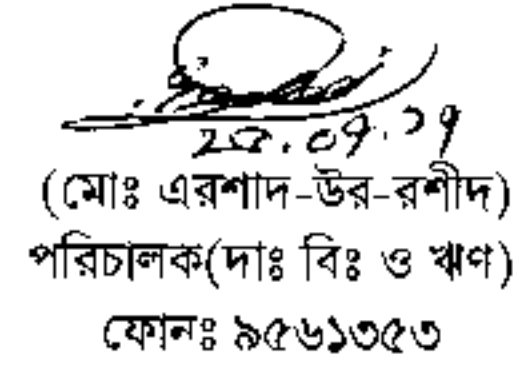 (মোঃ এরশাদ-উর-রশীদ)
পরিচালক(দাঃ বিঃ ও ঋণ)
ফোনঃ ৯৫৬১৩৫৩